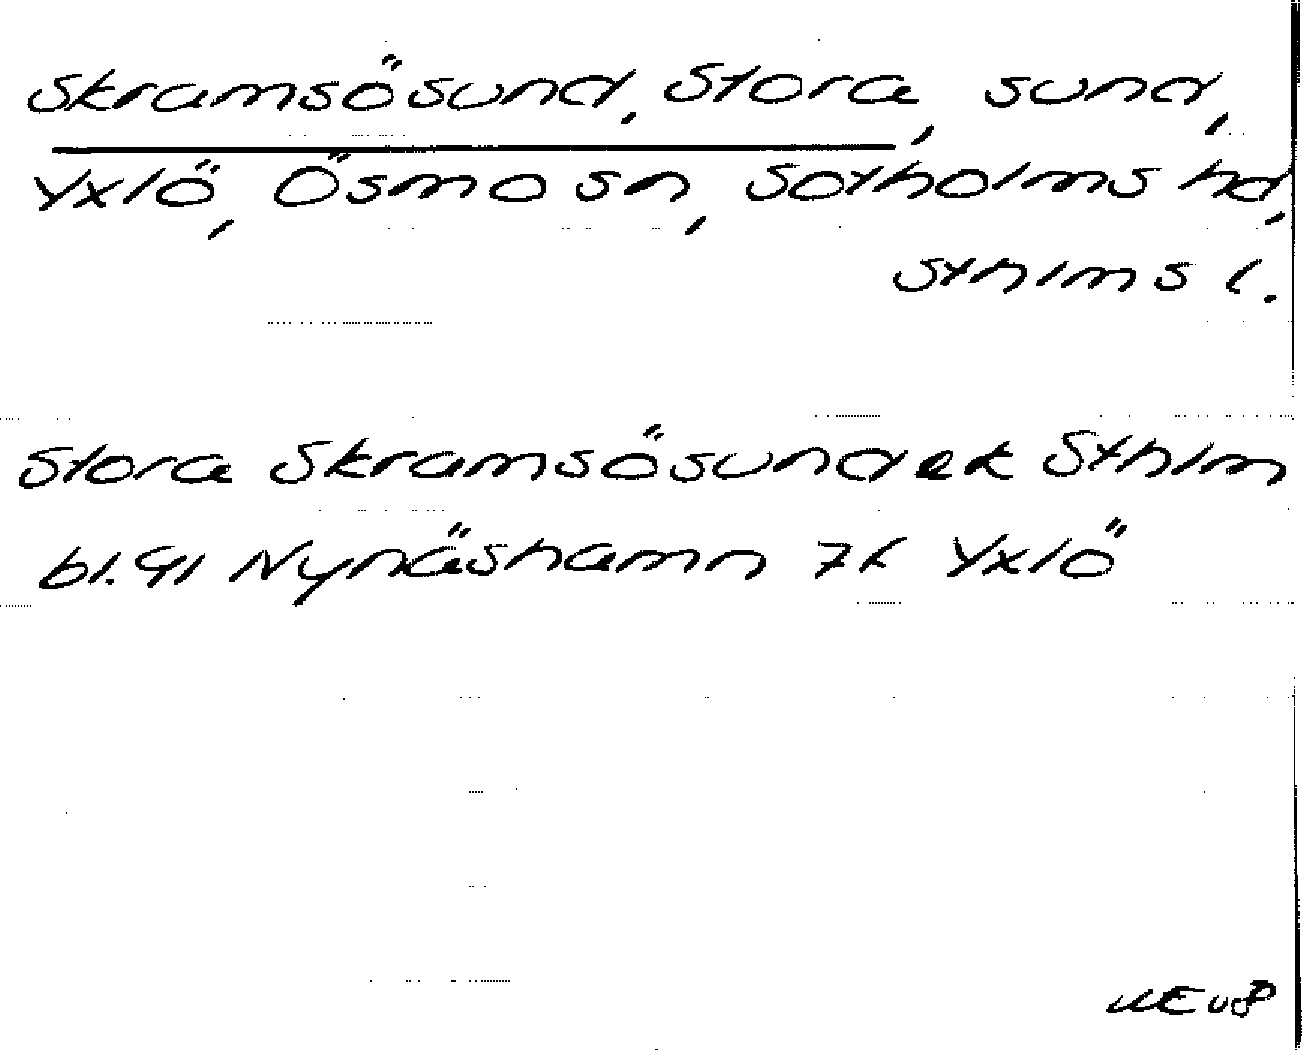 Skramsösund, Stora, sund,
Yxlö, Ösmo sn, Sotholms hd,
Sthlms l.
Stora Skramsösund ek Sthlm
bl. 91 Nynäshamn 7h Yxlö